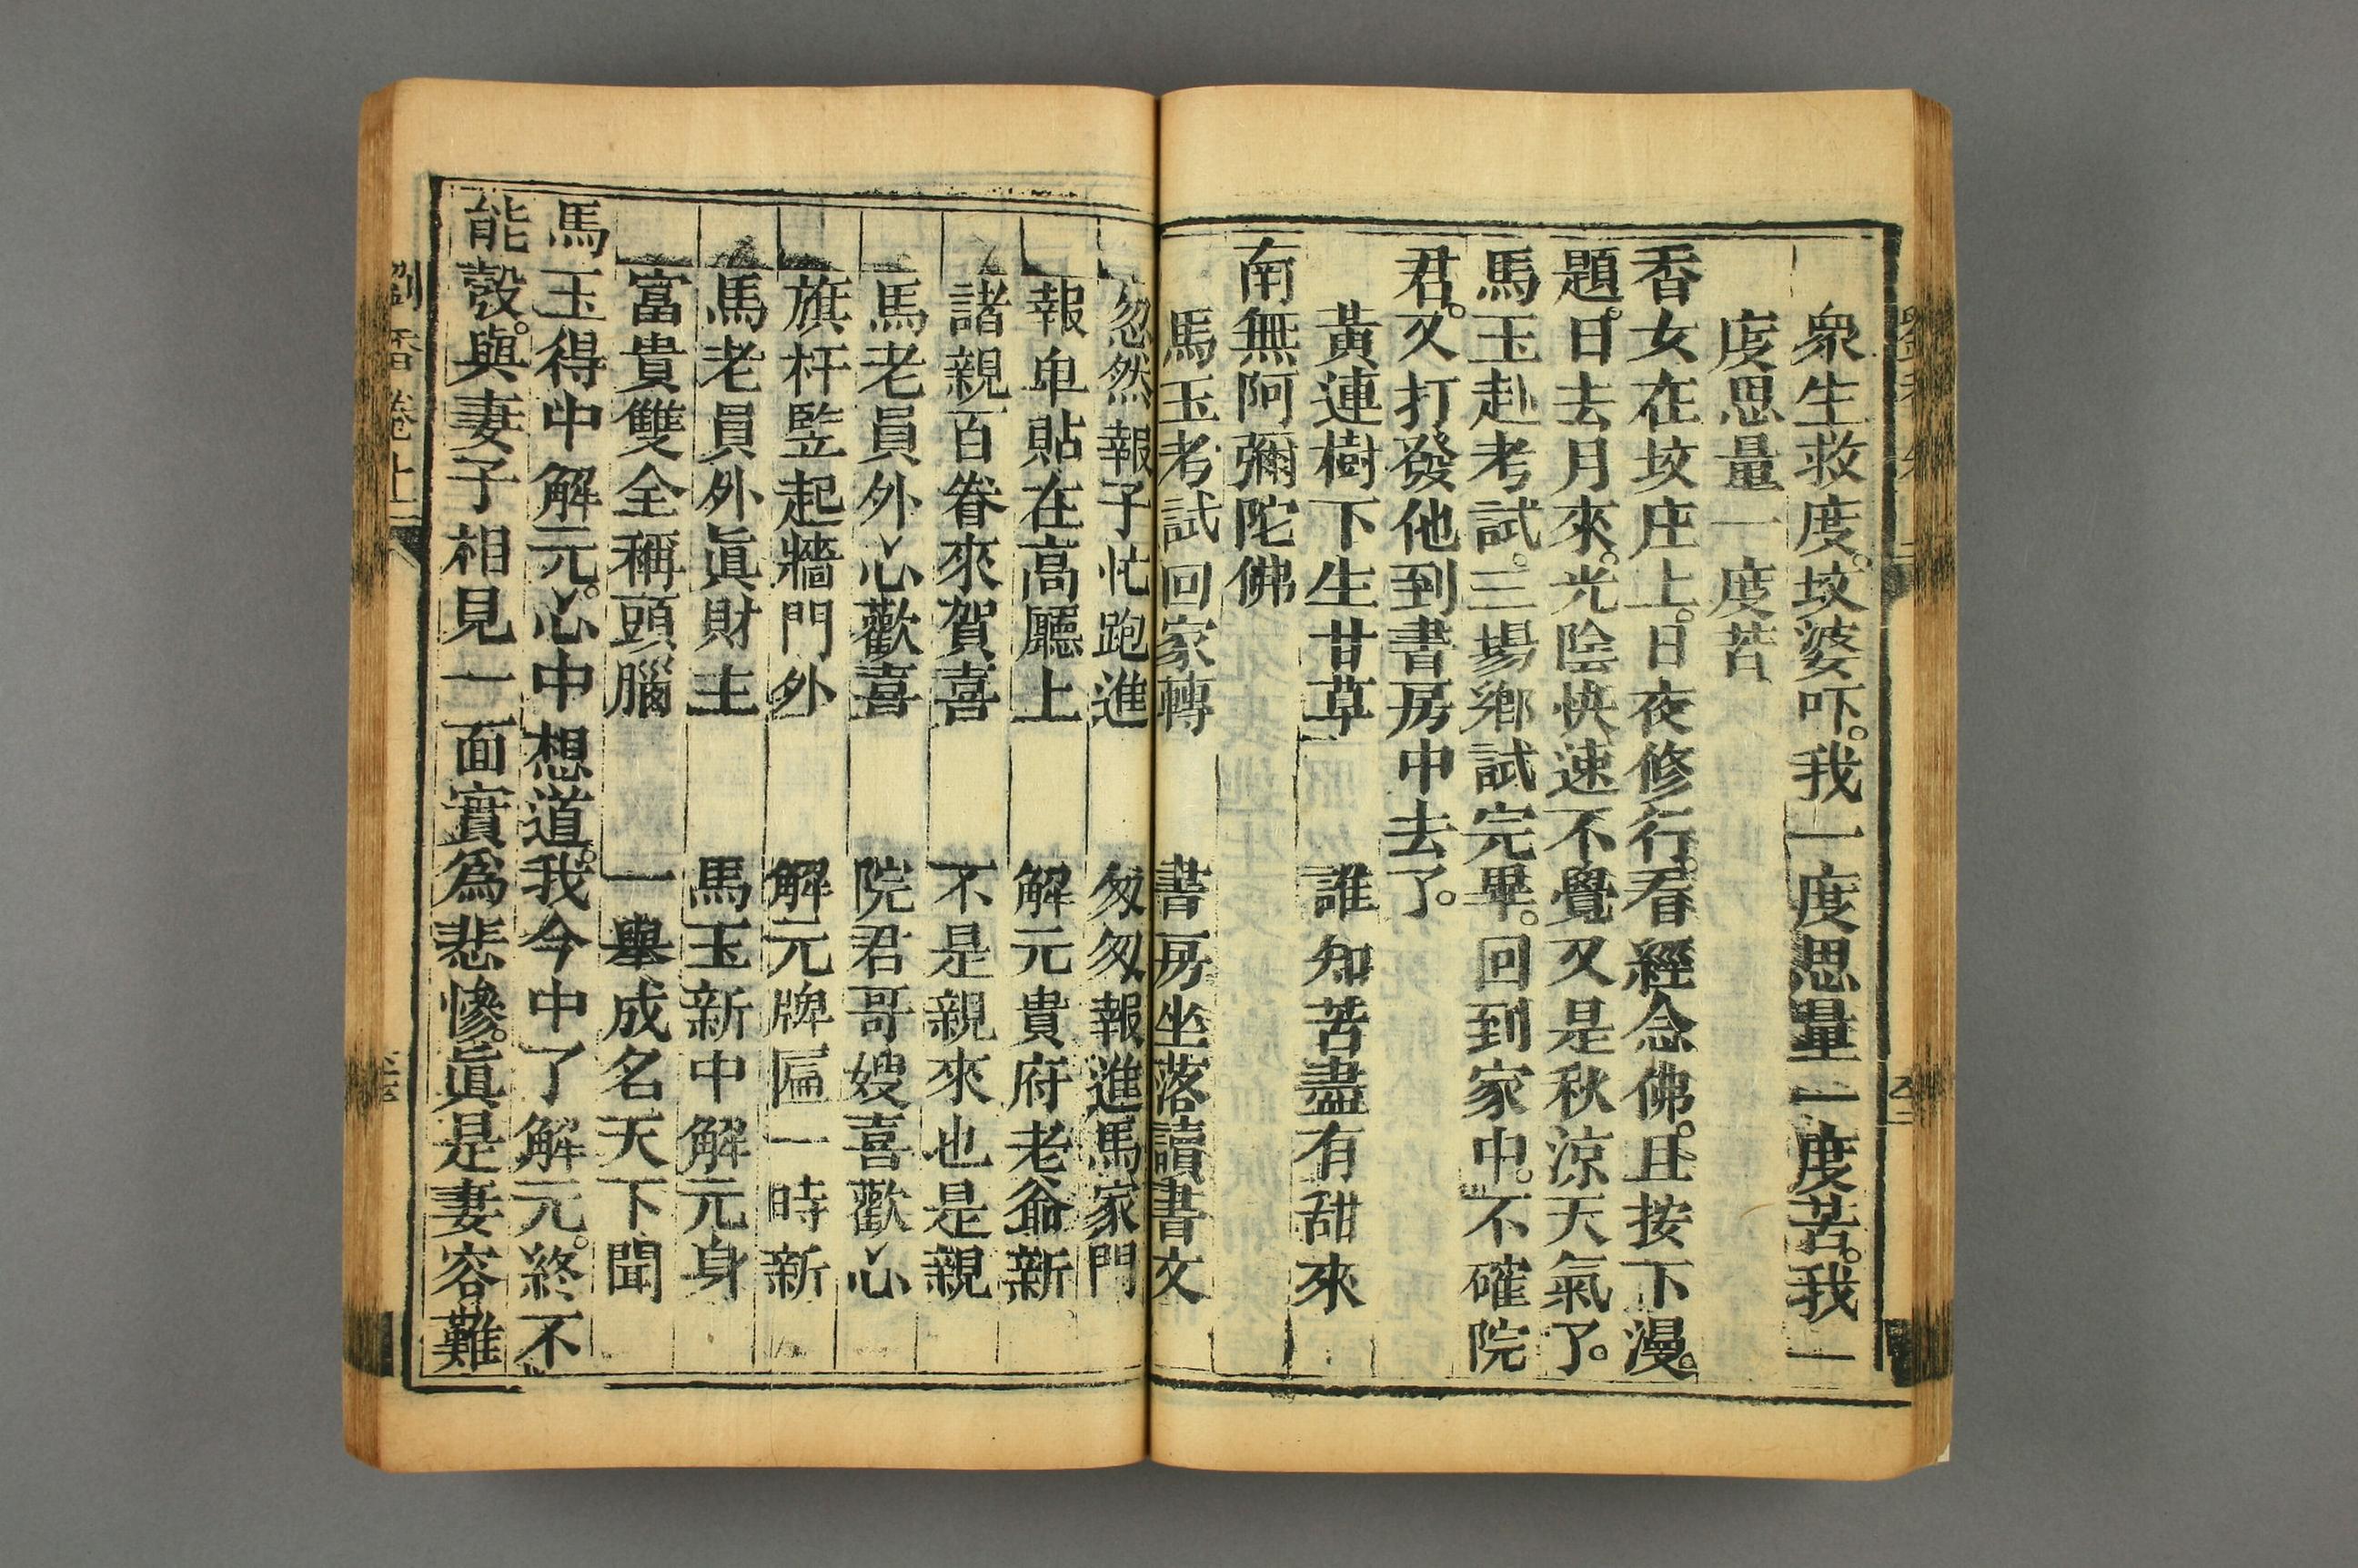 衆生救度。坟婆吓。我一度思量一度苦。我一
度思量一度苦
香女在坟庄上。日夜修行。看經念佛。且按下漫。
題。日去月來。光陰快速不覺又是秋涼天氣了。
馬玉赴考試。三場鄉試完畢。回到家中。不確院
君。又打發他到書房中去了。
黃連樹下生甘草　誰知苦盡有甜來
南無阿彌陀佛
馬玉考試回家轉　書房坐落讀書文
忽然報子忙跑進　匆匆報進馬家門
報单貼在高廳上　解元貴府老爺新
諸親百眷來賀喜　不是親來也是親
馬老員外心歡喜　院君哥嫂喜歡心
旗杆竪起牆門外　解元牌匾一時新
馬老員外眞財主　馬玉新中解元身
富貴雙全稱頭腦　一舉成名天下聞
馬玉得中解元。心中想道。我今中了解元。終不
能彀。與妻子相見一面實爲悲慘。眞是妻容難
劉香卷上